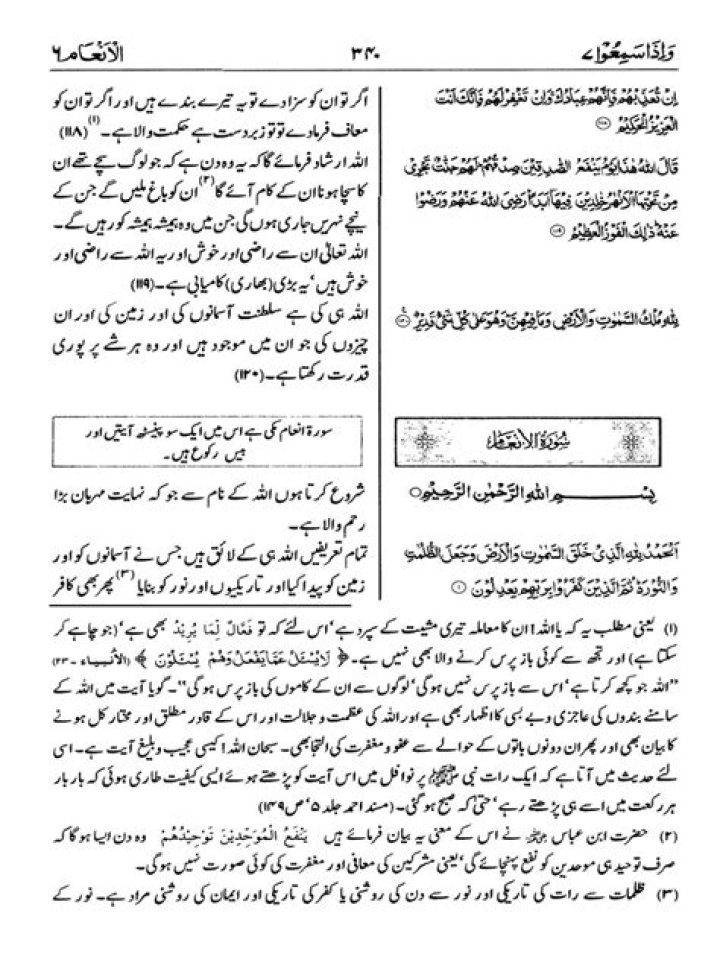 وَإِذَا سَمِعُوا ٧
٣٤٠
الأَنْعَام ٦
إِنْ تُعَذِّبْهُمْ فَإِنَّهُمْ عِبَادُكَ وَإِنْ تَغْفِرْ لَهُمْ فَإِنَّكَ أَنْتَ
الْعَزِيزُ الْحَكِيمُ ۝
قَالَ اللَّهُ هَٰذَا يَوْمُ يَنْفَعُ الصَّٰدِقِينَ صِدْقُهُمْ لَهُمْ جَنَّٰتٌ تَجْرِي
مِنْ تَحْتِهَا الْأَنْهَٰرُ خَٰلِدِينَ فِيهَا أَبَدًا رَضِيَ اللَّهُ عَنْهُمْ وَرَضُوا
عَنْهُ ذَٰلِكَ الْفَوْزُ الْعَظِيمُ ۝
لِلَّهِ مُلْكُ السَّمَٰوَٰتِ وَالْأَرْضِ وَمَا فِيهِنَّ وَهُوَ عَلَىٰ كُلِّ شَيْءٍ قَدِيرٌ ۝
سُورَةُ الأَنْعَامِ
بِسْمِ اللَّهِ الرَّحْمَٰنِ الرَّحِيمِ ۝
اَلْحَمْدُ لِلَّهِ الَّذِي خَلَقَ السَّمَٰوَٰتِ وَالْأَرْضَ وَجَعَلَ الظُّلُمَٰتِ
وَالنُّورَ ثُمَّ الَّذِينَ كَفَرُوا بِرَبِّهِمْ يَعْدِلُونَ ۝
اگر تو ان کو سزا دے تو یہ تیرے بندے ہیں اور اگر تو ان کو
معاف فرما دے تو تو زبردست ہے حکمت والا ہے۔ (۱) (۱۱۸)
اللہ ارشاد فرمائے گا کہ یہ وہ دن ہے کہ جو لوگ سچے تھے ان
کا سچا ہونا ان کے کام آئے گا (۲) ان کو باغ ملیں گے جن کے
نیچے نہریں جاری ہوں گی جن میں وہ ہمیشہ ہمیشہ کو رہیں گے۔
اللہ تعالیٰ ان سے راضی اور خوش اور یہ اللہ سے راضی اور
خوش ہیں، یہ بڑی (بھاری) کامیابی ہے۔ (۱۱۹)
اللہ ہی کی ہے سلطنت آسمانوں کی اور زمین کی اور ان
چیزوں کی جو ان میں موجود ہیں اور وہ ہر شے پر پوری
قدرت رکھتا ہے۔ (۱۲۰)
سورۂ انعام مکی ہے اس میں ایک سو پینسٹھ آیتیں اور
بیس رکوع ہیں۔
شروع کرتا ہوں اللہ کے نام سے جو کہ نہایت مہربان بڑا
رحم والا ہے۔
تمام تعریفیں اللہ ہی کے لائق ہیں جس نے آسمانوں کو اور
زمین کو پیدا کیا اور تاریکیوں اور نور کو بنایا (۳) پھر بھی کافر
(۱) یعنی مطلب یہ کہ یا اللہ! ان کا معاملہ تیری مشیت کے سپرد ہے، اس لئے کہ تو فَعَّالٌ لِّمَا يُرِيدُ بھی ہے، (جو چاہے کر
سکتا ہے) اور تجھ سے کوئی باز پرس کرنے والا بھی نہیں ہے۔ ﴿ لَا يُسْئَلُ عَمَّا يَفْعَلُ وَهُمْ يُسْئَلُونَ ﴾ (الأنبیاء۔ ۲۳)
"اللہ جو کچھ کرتا ہے، اس سے باز پرس نہیں ہوگی، لوگوں سے ان کے کاموں کی باز پرس ہوگی"۔ گویا آیت میں اللہ کے
سامنے بندوں کی عاجزی و بے بسی کا اظہار بھی ہے اور اللہ کی عظمت و جلالت اور اس کے قادر مطلق اور مختار کل ہونے
کا بیان بھی اور پھر ان دونوں باتوں کے حوالے سے عفو و مغفرت کی التجا بھی۔ سبحان اللہ! کیسی عجیب و بلیغ آیت ہے۔ اسی
لئے حدیث میں آتا ہے کہ ایک رات نبی ﷺ پر نوافل میں اس آیت کو پڑھتے ہوئے ایسی کیفیت طاری ہوئی کہ بار بار
ہر رکعت میں اسے ہی پڑھتے رہے، حتیٰ کہ صبح ہوگئی۔ (مسند احمد جلد ۵، ص ۱۴۹)
(۲) حضرت ابن عباس رضی اللہ عنہ نے اس کے معنی یہ بیان فرمائے ہیں يَنْفَعُ الْمُوَحِّدِينَ تَوْحِيدُهُمْ وہ دن ایسا ہوگا کہ
صرف توحید ہی موحدین کو نفع پہنچائے گی، یعنی مشرکین کی معافی اور مغفرت کی کوئی صورت نہیں ہوگی۔
(۳) ظلمات سے رات کی تاریکی اور نور سے دن کی روشنی یا کفر کی تاریکی اور ایمان کی روشنی مراد ہے۔ نور کے